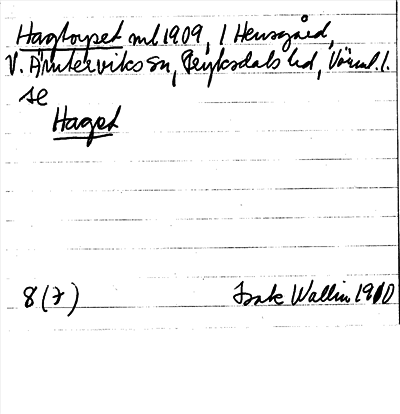 Hagtorpet ml 1909, 1 Hensgård,
V. Ämterviks sn, Fryksdals hd, Värml. l.
se
Haget
8 (7)
Isak Wallin 1910